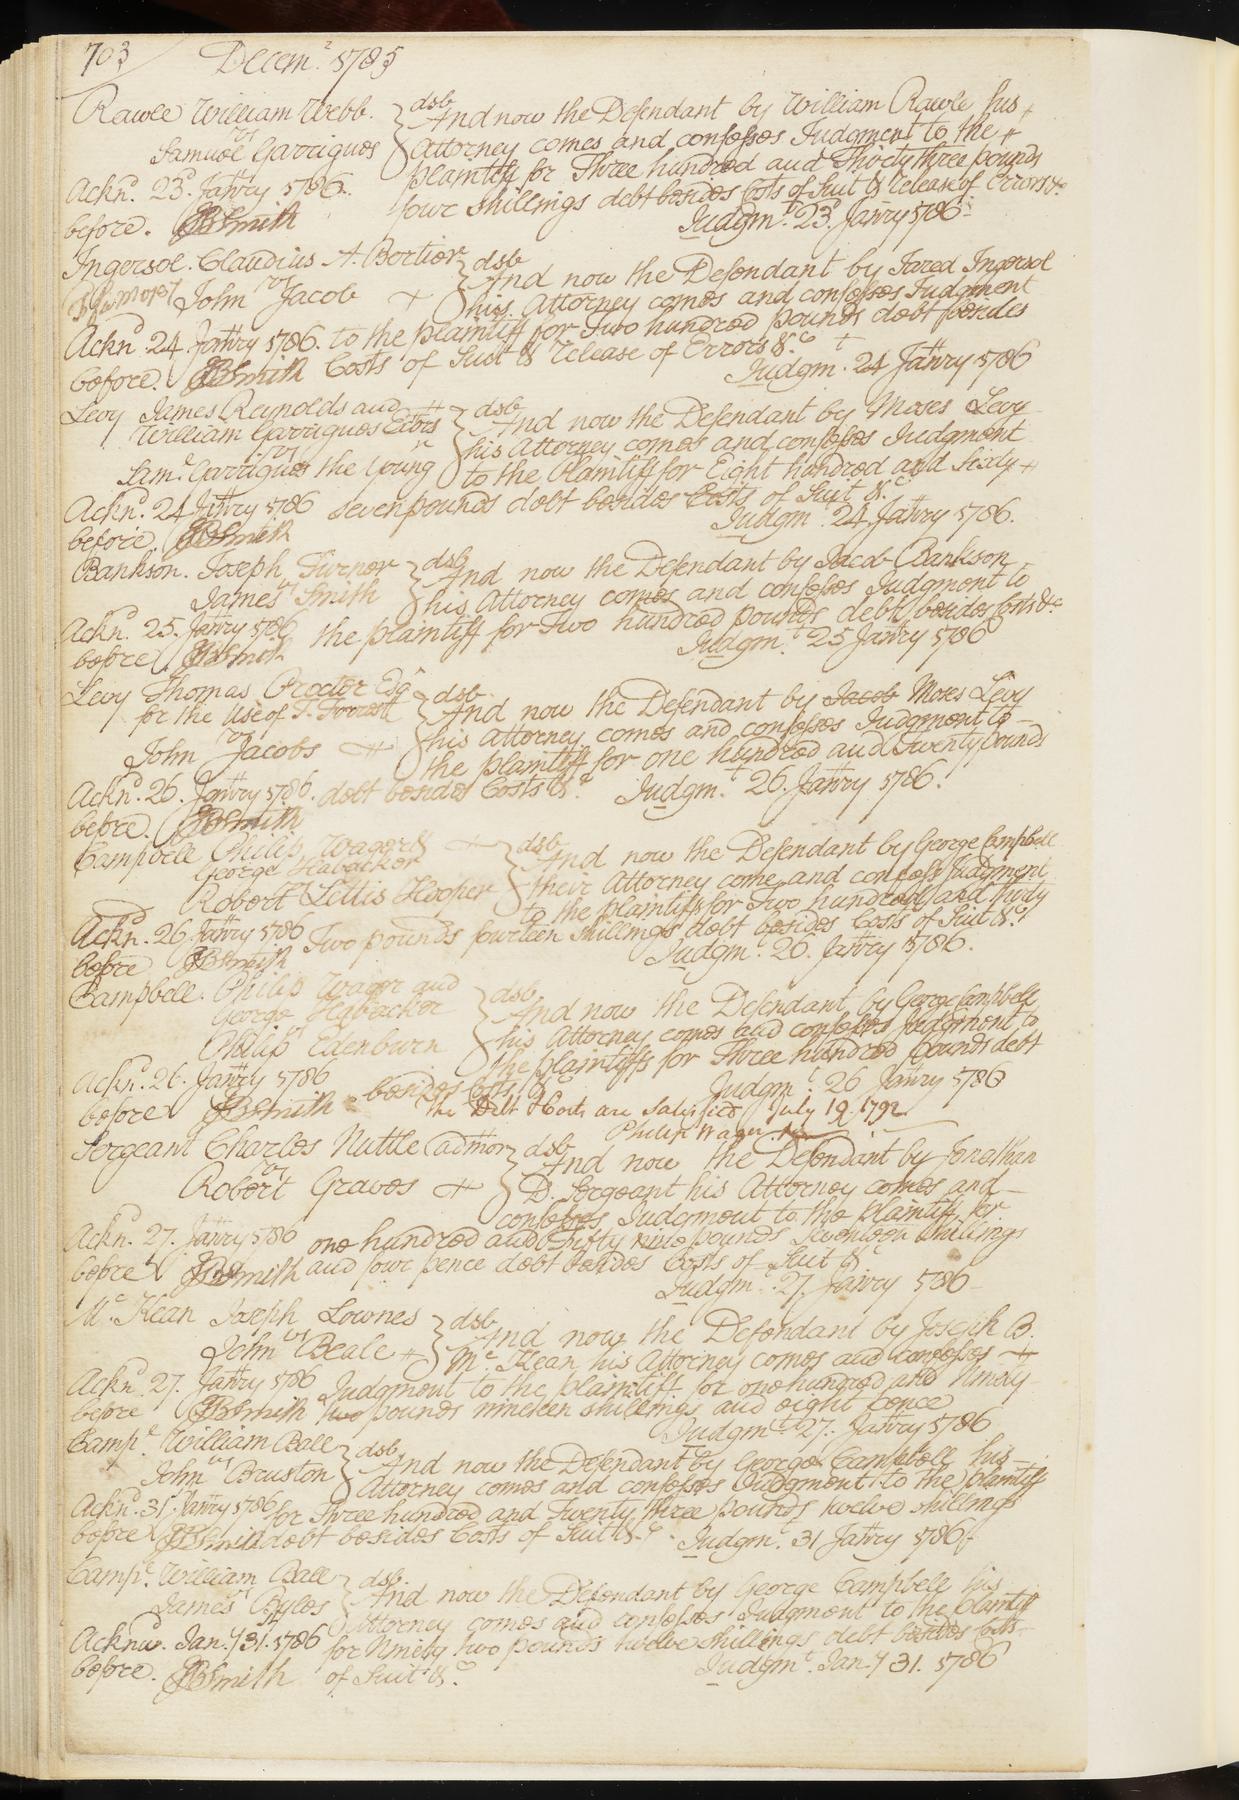 703 Decem.r 1785
Rawle William Webb. } dsb
vs And now the Defendant by William Rawle his
Samuel Garrigues Attorney comes and confesses Judgment to the
plaintiff for Three hundred and Thirty three pounds
Acknd. 23d. Janry 1786. four shillings debt besides Costs of Suit & release of errors &c
before. JBSmith Judgmt. 23d. Janry 1786
Ingersol. Claudius A. Bertier } dsb
vs And now the Defendant by Jared Ingersol
John Jacob his Attorney comes and confesses Judgment
Acknd. 24 Janry 1786. to the plaintiff for Two hundred pounds debt besides
before. JBSmith Costs of Suit & release of Errors &.c
Judgm. 24 Janry 1786
Levy James Reynolds and } dsb
William Garrigues Extrs And now the Defendant by Moses Levy
vs his Attorney comes and confesses Judgment
Saml. Garrigues the Young to the Plaintiff for Eight hundred and Sixty
Acknd. 24 Janry 1786 seven pounds debt besides Costs of Suit &.c
before. JBSmith Judgmt. 24 Janry 1786.
Bankson. Joseph Turner } dsb
vs And now the Defendant by Jacob Bankson
James Smith his Attorney comes and confesses Judgment to
Acknd. 25. Janry 1786 the plaintiff for Two hundred pounds debt besides Costs &c
before JBSmith Judgmt. 25 Janry 1786
Levy Thomas Proctor Esqr } dsb
for the Use of T. Forrest And now the Defendant by Jacob Moses Levy
vs his Attorney comes and confesses Judgment to
John Jacobs the plaintiff for one hundred and Twenty Pounds
Acknd. 26. Janry 1786. debt besides Costs &c Judgmt. 26. Janry 1786.
before. JBSmith
Campbell Philip Wager & } dsb
George Habacker And now the Defendant by George Campbell
vs their Attorney come and confess Judgment
Robert Lettis Hooper to the plaintiffs for Two hundred and thirty
Acknd. 26 Janry 1786 Two pounds fourteen shillings debt besides Costs of Suit &c
before JBSmith Judgmt. 26. Janry 1786.
Campbell. Philip Wager and } dsb
George Habacker And now the Defendant by George Campbell
vs his Attorney comes and confesses judgment to
Philip Edenburn the plaintiffs for Three hundred pounds debt
Acknd. 26. Janry 1786 besides Costs &c Judgmt. 26 Janry 1786
before JBSmith The Debt & Costs are satisfied July 19 1792
Philip Wager
Sergeant Charles Nuttle admor } dsb
vs And now the Defendant by Jonathan
Robert Graves D. Sergeant his Attorney comes and
confesses Judgment to the plaintiff for
Acknd. 27. Janry 1786 one hundred and Fifty nine pounds Seventeen shillings
before JBSmith and four pence debt besides Costs of Suit &c
Judgmt. 27. Janry 1786
Mc. Kean Joseph Lownes } dsb
vs And now the Defendant by Joseph B.
John Beale Mc. Kean his Attorney comes and confesses
Acknd. 27. Janry 1786 Judgment to the plaintiff for one hundred and Ninety
before JBSmith two pounds nineteen shillings and eight pence
Judgmt. 27. Janry 1786
Campl. William Ball } dsb
vs And now the Defendant by George Campbell his
John Bruston Attorney comes and confesses Judgment to the plaintiff
Acknd. 31st. Janry 1786 for Three hundred and Twenty three pounds twelve shillings
before JBSmith debt besides Costs of Suit &.c Judgmt. 31 Janry 1786
Campl. William Ball } dsb.
vs And now the Defendant by George Campbell his
James Byles Attorney comes and confesses Judgment to the plaintiff
Acknd. Jan.y 31. 1786 for Ninety two pounds twelve shillings debt besides costs
before. JBSmith of Suit &.c Judgmt. Jan.y 31. 1786